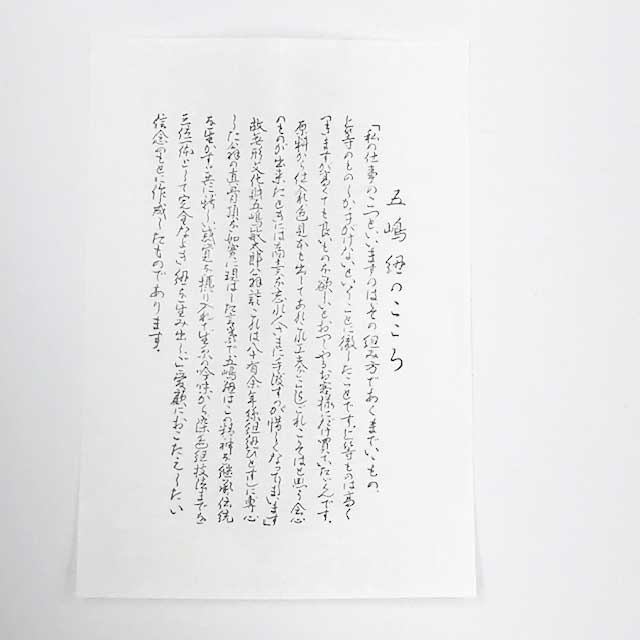 五嶋紐のこころ
「私の仕事のこつといいますのはその組み方であくまでいいもの、
上等のものしか手がけないということに徹したことです。上等なものは高く
つきますが高くても良いものを欲しいとおっしゃるお客様にだけ買っていただくんです。
原料から仕入れ色見本も出してあれこれ工夫しこれこそはと思う会心
のものが出来たときには商売を忘れ今まさに手放すが惜しくなってしまいます」
故無形文化財五嶋敏太郎翁談これは八十有余年絲組紐ひとすじに専心
した翁の真骨頂を如実に現はした言葉で五嶋紐はこの精神を継承伝統
を生かすと共に新しい感覚を採り入れ生糸の吟味から染色組技法までを
三位一体として完全なよき紐を生み出しご愛顧におこたえしたい
信念のもとに作成したものであります。